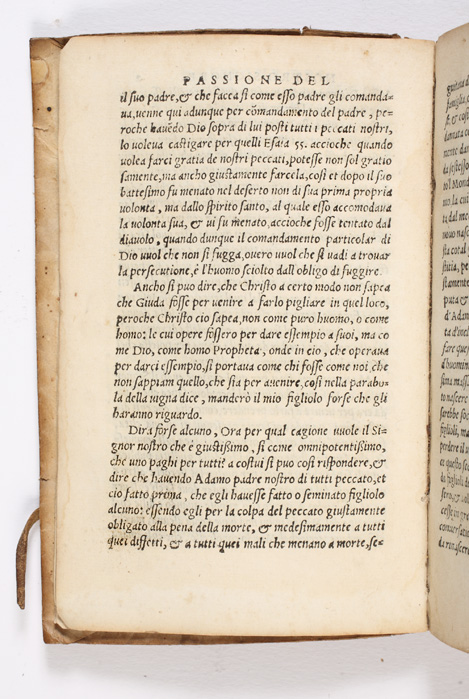 PASSIONE DEL
il suo padre, & che facea sì come esso padre gli comanda-
ua, uenne qui adunque per cōmandamento del padre, pe-
roche hauēdo Dio sopra di lui posti tutti i peccati nostri,
lo voleua castigare per quelli Esaia 55. accioche quando
volea farci gratia de nostri peccati, potesse non sol gratio
samente, ma ancho giustamente farcela, cosi et dopo il suo
battesimo fu menato nel deserto non di sua prima propria
volonta, ma dallo spirito santo, al quale esso accomodaua
la volonta sua, & ui fu menato, accioche fosse tentato dal
diauolo, quando dunque il comandamento particolar di
Dio vuol che non si fugga, overo vuol che si vadi a trouar
la persecutione, è l'huomo sciolto dall obligo di fuggire.
Ancho si puo dire, che Christo a certo modo non sapea
che Giuda fosse per uenire a farlo pigliare in quel loco,
peroche Christo cio sapea, non come puro huomo, o come
homo: le cui opere fossero per dare essempio a suoi, ma co
me Dio, come homo Propheta, onde in cio, che operaua
per darci essempio, si portaua come chi fosse come noi, che
non sappiam quello, che sia per auenire, cosi nella parabo-
la della uigna dice, manderò il mio figliolo forse che gli
haranno riguardo.
Dira forse alcuno, Ora per qual cagione vuole il Si-
gnor nostro che è giustissimo, si come omnipotentissimo,
che uno paghi per tutti? a costui si puo cosi rispondere, &
dire che hauendo Adamo padre nostro di tutti peccato, et
cio fatto prima, che egli hauesse fatto o seminato figliolo
alcuno: essendo egli per la colpa del peccato giustamente
obligato alla pena della morte, & medesimamente a tutti
quei diffetti, & a tutti quei mali che menano a morte, se-